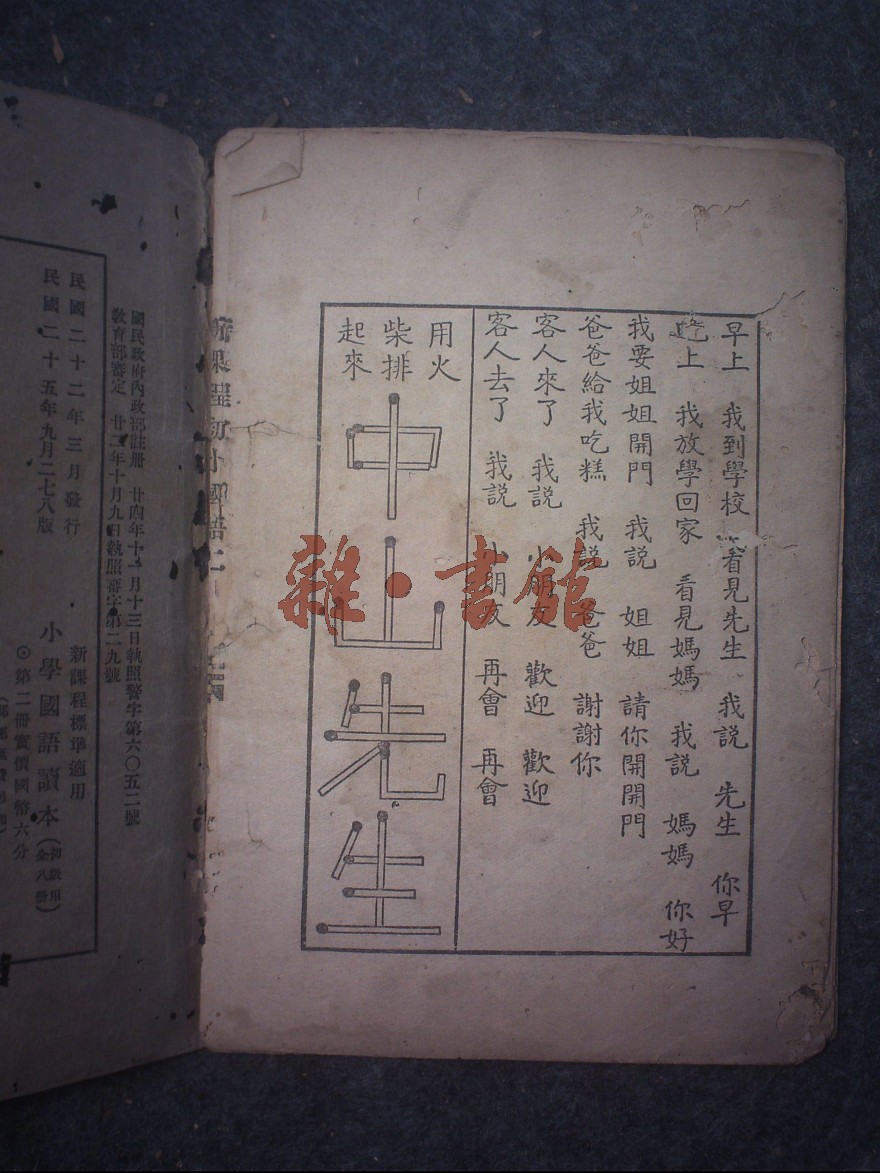 早上　我到學校　看見先生　我說　先生　你早
晚上　我放學回家　看見媽媽　我說　媽媽　你好
我要姐姐開門　我說　姐姐　請你開開門
爸爸給我吃糕　我說　爸爸　謝謝你
客人來了　我說　小朋友　歡迎　歡迎
客人去了　我說　小朋友　再會　再會
用火
柴排
起來
中山先生
新課程初小國語二
國民政府內政部註冊　廿四年十一月十三日執照警字第六〇五二號
教育部審定　廿二年十月九日執照審字第二九號
民國二十二年三月發行
民國二十五年九月二七八版
新課程標準適用
小學國語讀本（初級用全八冊）
⊙第二冊實價國幣六分
雜·書館